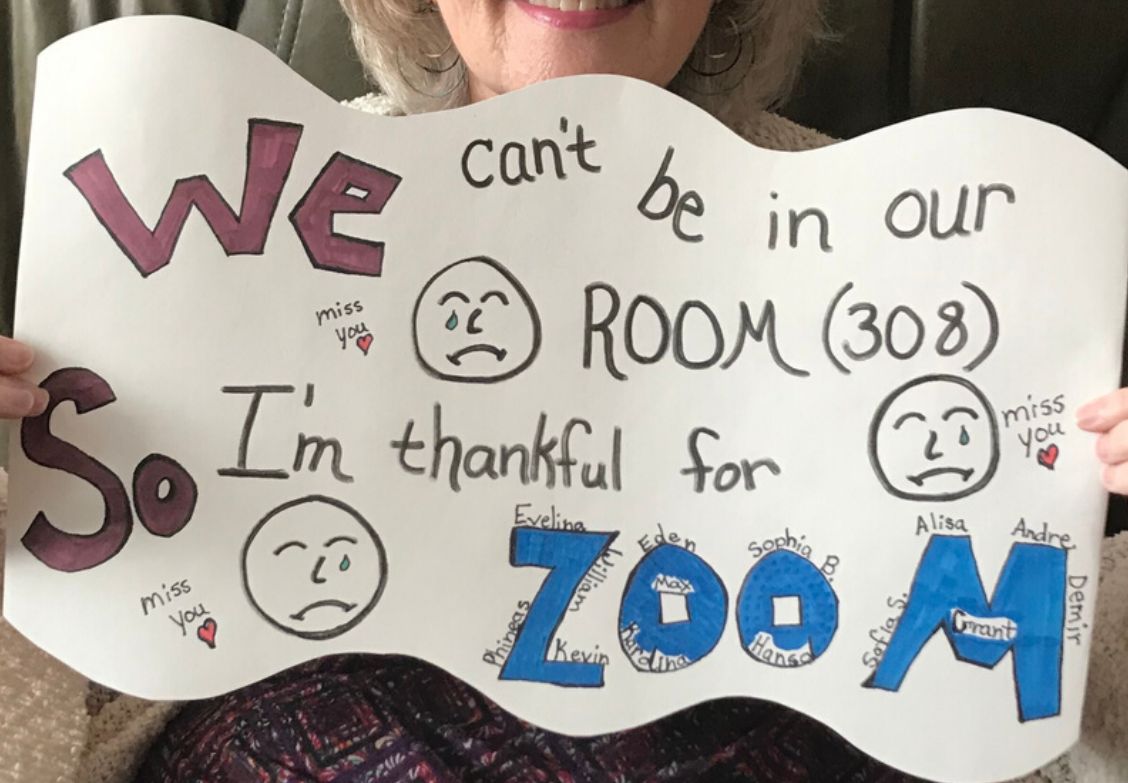 We can't be in our
miss you
ROOM (308)
So I'm thankful for
miss you
miss you
ZOOM
Evelina
William
Phineas
Kevin
Eden
Max
Karolina
Sophia B.
Hansol
Alisa
Andre
Sofia S.
Grant
Demir